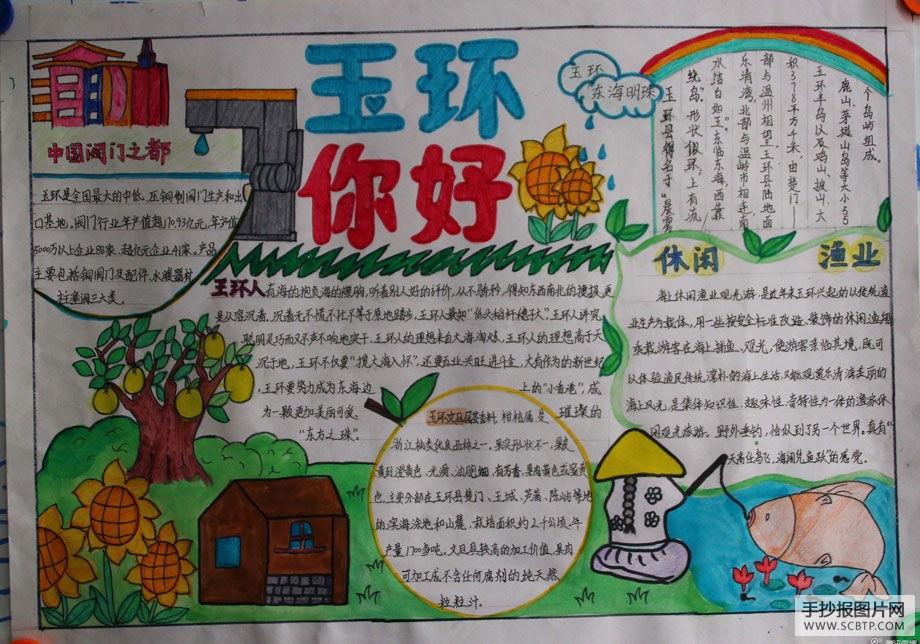 玉环
你好
中国阀门之都
玉环是全国最大的中低压铜制阀门生产和出
口基地,阀门行业年产值超170.93亿元,年产值
5000万以上企业85家,超亿元企业41家。产品
主要包括铜阀门及配件、水暖器材、
柱塞阀三大类。
玉环
东海明珠
玉环县得名于
统岛"。形状似环,上有流
水洁白如玉"东临东海,西靠
乐清湾,北部与温岭市相连,南
部与温州相望。玉环县陆地面
积378平方千米,由楚门
玉环半岛以及鸡山、披山、大
鹿山、茅埏山岛等大小55
个岛屿组成。
玉环人有海的抱负海的
是从容沉着,沉着无不慌不忙不等于原地踏步,玉环人最知
聪明灵巧而又不声不响地实干,玉环人的理想来自大海淘炼,玉环人的理想高于天
沉于地,玉环不仅要"揽大海入怀",还要百业兴旺连斗金,大有作为的新世纪
,玉环要努力成为东海边上的"小香港",成
为一颗更加美丽可爱、璀璨的
"东方之珠"。
玉环文旦属芸香科,柑桔属,是
浙江柚类优良品种之一。果实形状不一,果皮
黄到澄黄色,光滑,油胞细,有芳香,果肉黄色或蜜黄
色,主要分部在玉环县楚门、玉城、芦浦、陈屿等地
的滨海涂地和山麓,栽培面积约2千公顷,年
产量1700多吨。文旦具较高的加工价值,果肉
可加工成不含任何腐剂的纯天然
粒粒汁。
休闲 渔业
海上休闲渔业观光游,是近年来玉环兴起的以传统渔
业生产为载体,用一些按安全标准改造、装饰的休闲渔船
乘载游客在海上捕鱼、观光,使游客亲临其境,既可
以体验渔民传统淳朴的海上生活,又能观赏乐清湾美丽的
海上风光,是集体知识性、趣味性、奇特性为一体的渔家休
闲观光旅游。野外垂钓,恰似到了另一个世界。真有"
天高任鸟飞,海阔凭鱼跃"的感觉。
手抄报图片网
WWW.SCBTP.COM